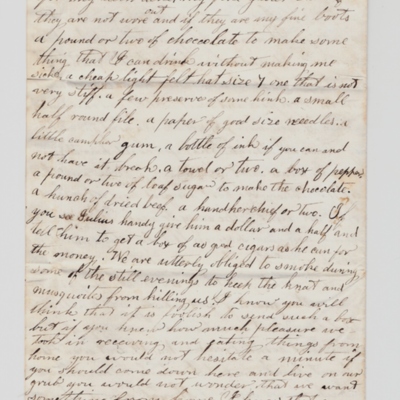 they are not wore out if they are my fine boots
a pound or two of choccolate to make some
thing that I can drink without making me
sick, a cheap light felt hat size 7 one that is not
very stiff. a few preserve of some kink. a small
half round file. a paper of good size needles. a
little camphor gum, a bottle of ink if you can and
not have it break. a towel or two. a box of pepper
a pound or two of loaf sugar to make the chocolate.
a hunch of dried beef. a handkerchief or two. If
you see Julius handy give him a dollar and a half and
tell him to get a box of as good cigars as he can for
the money. We are utterly obliged to smoke during
some of the still evenings to keep the knat and
musquitos from killing us. I know you will
think that it is foolish to send such a box
but if you knew how much pleasure we
took in receiving and eating things from
home you would not hesitate a minute if
you should come down here and live on our
grub you would not wonder that we want
something from home